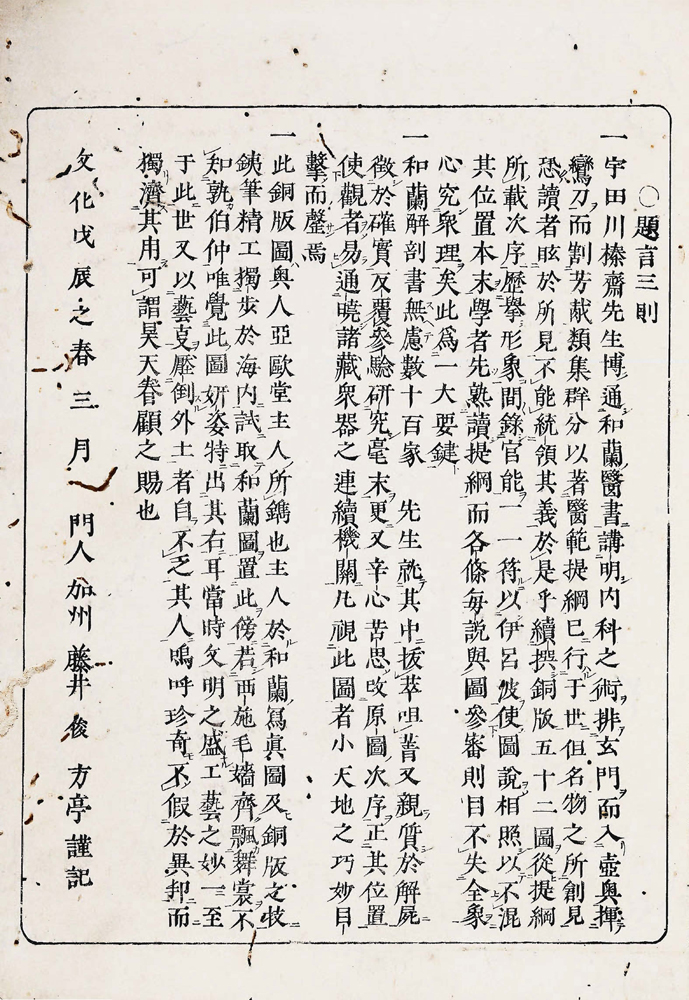 ○題言三則
一宇田川榛齋先生博通和蘭醫書講明内科之術排玄門而入壺奥揮
鸞刀而割芳献類集群分以著醫範提綱已行于世但名物之所創見
恐讀者眩於所見不能統領其義於是乎續撰銅版五十二圖從提綱
所載次序歴擧形象間錄官能一一符以伊呂波使圖說相照以不混
其位置本末學者先熟讀提綱而各條毎說與圖參審則目不失全象
心究衆理矣此爲一大要鍵
一和蘭解剖書無慮數十百家 先生就其中抜萃咀菁又親質於解屍
徴於確實反覆參驗研究毫末更又辛心苦思改原圖次序正其位置
使觀者易通曉諸藏衆器之連續機關凡視此圖者小天地之巧妙目
擊而罄焉
一此銅版圖與人亞歐堂主人所鐫也主人於和蘭寫眞圖及銅版之技
銕筆精工獨步於海内試取和蘭圖置此傍若西施毛嬙齊飄舞裳不
知孰伯仲唯覺此圖妍姿特出其右耳當時文明之盛工藝之妙一至
于此世又以藝叓壓倒外土者自不乏其人嗚呼珍奇不假於異邦而
獨濟其用可謂昊天眷顧之賜也
文化戊辰之春三月 門人加州藤井俊方亭謹記